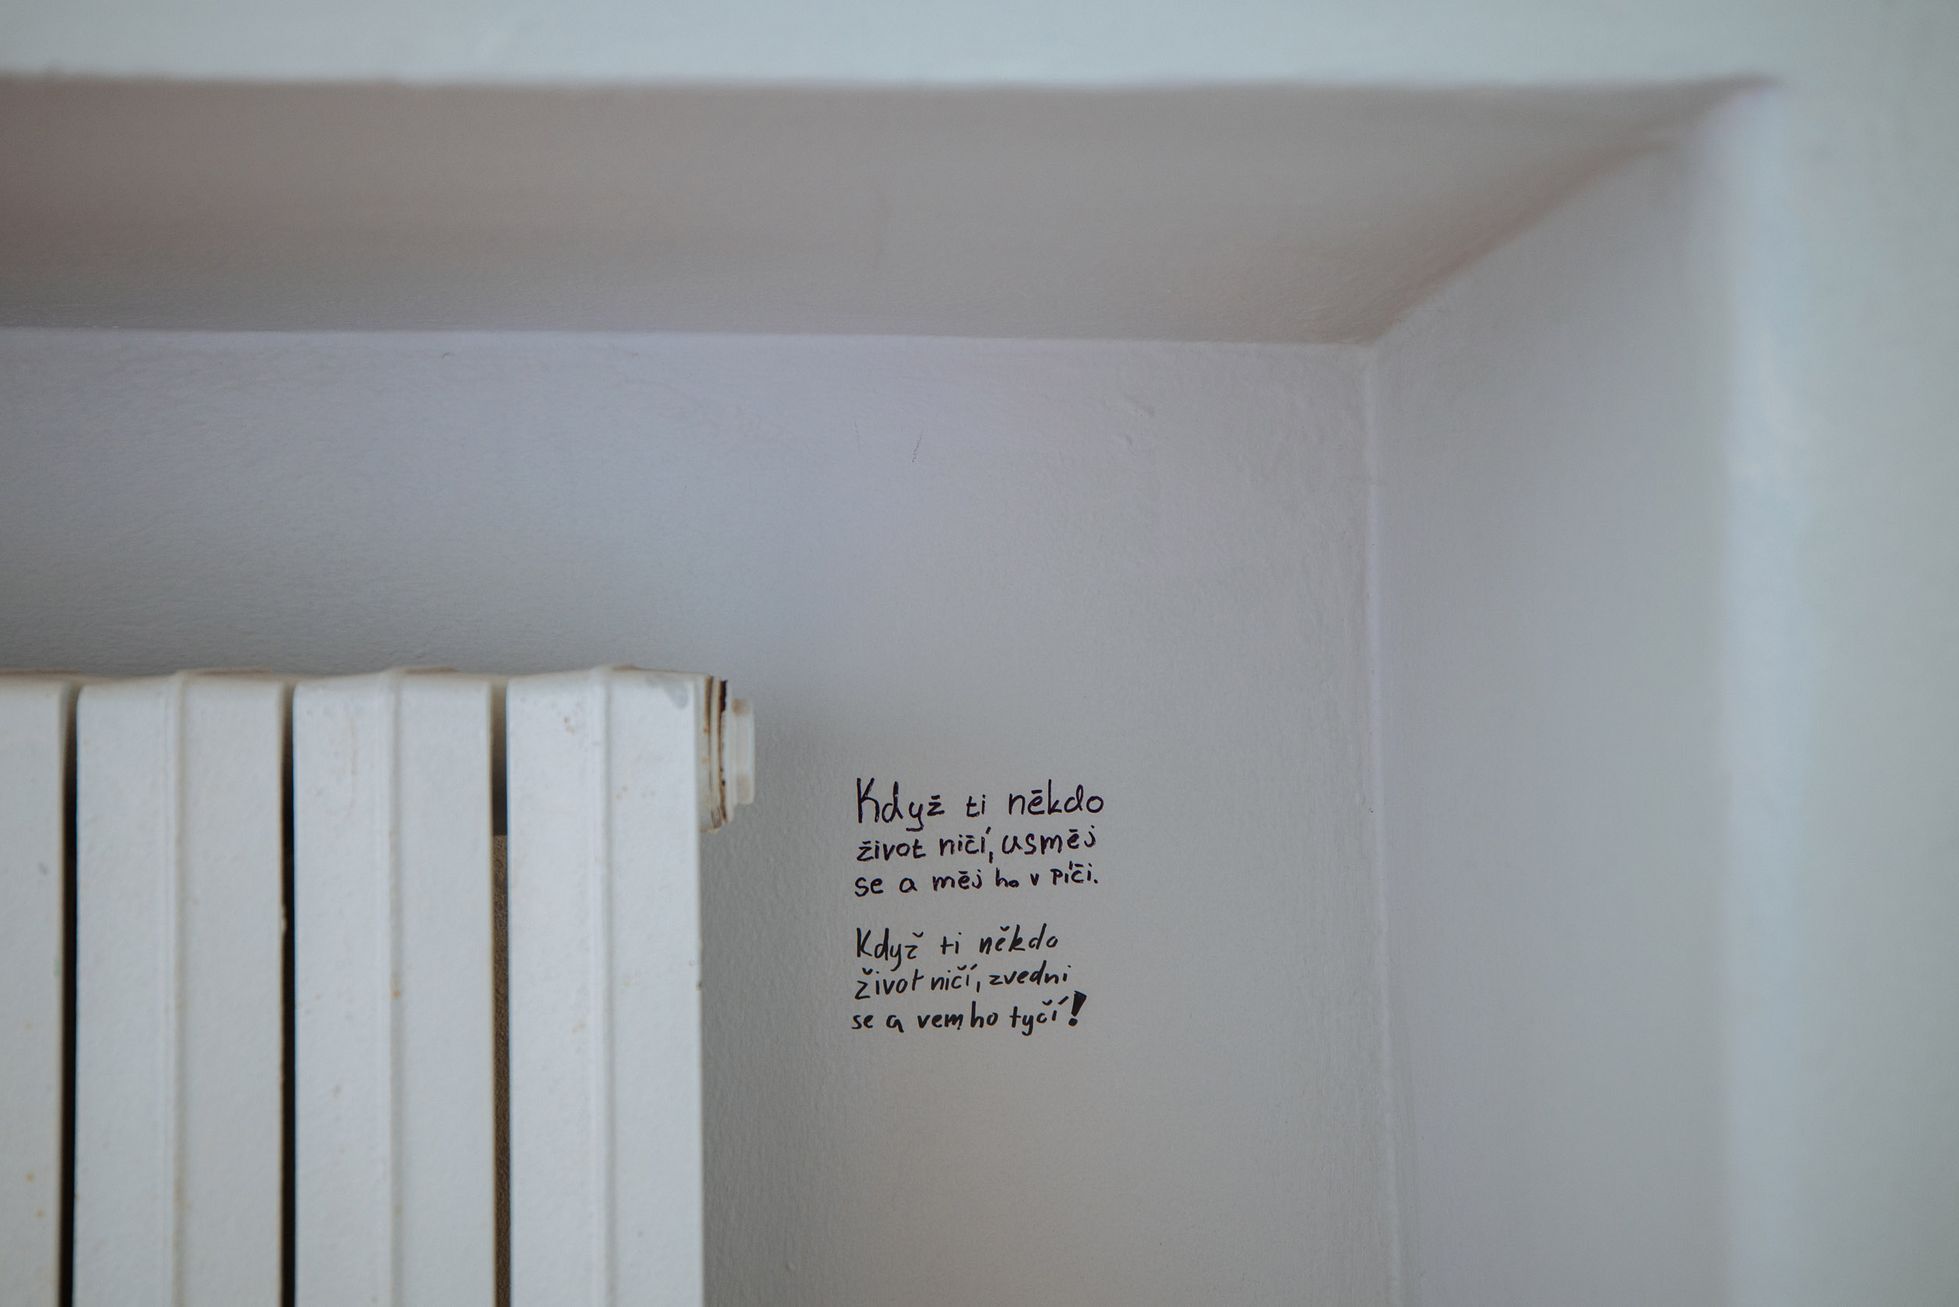 Když ti někdo
život ničí, usměj
se a měj ho v píči.
Když ti někdo
život ničí, zvedni
se a vem ho tyčí!